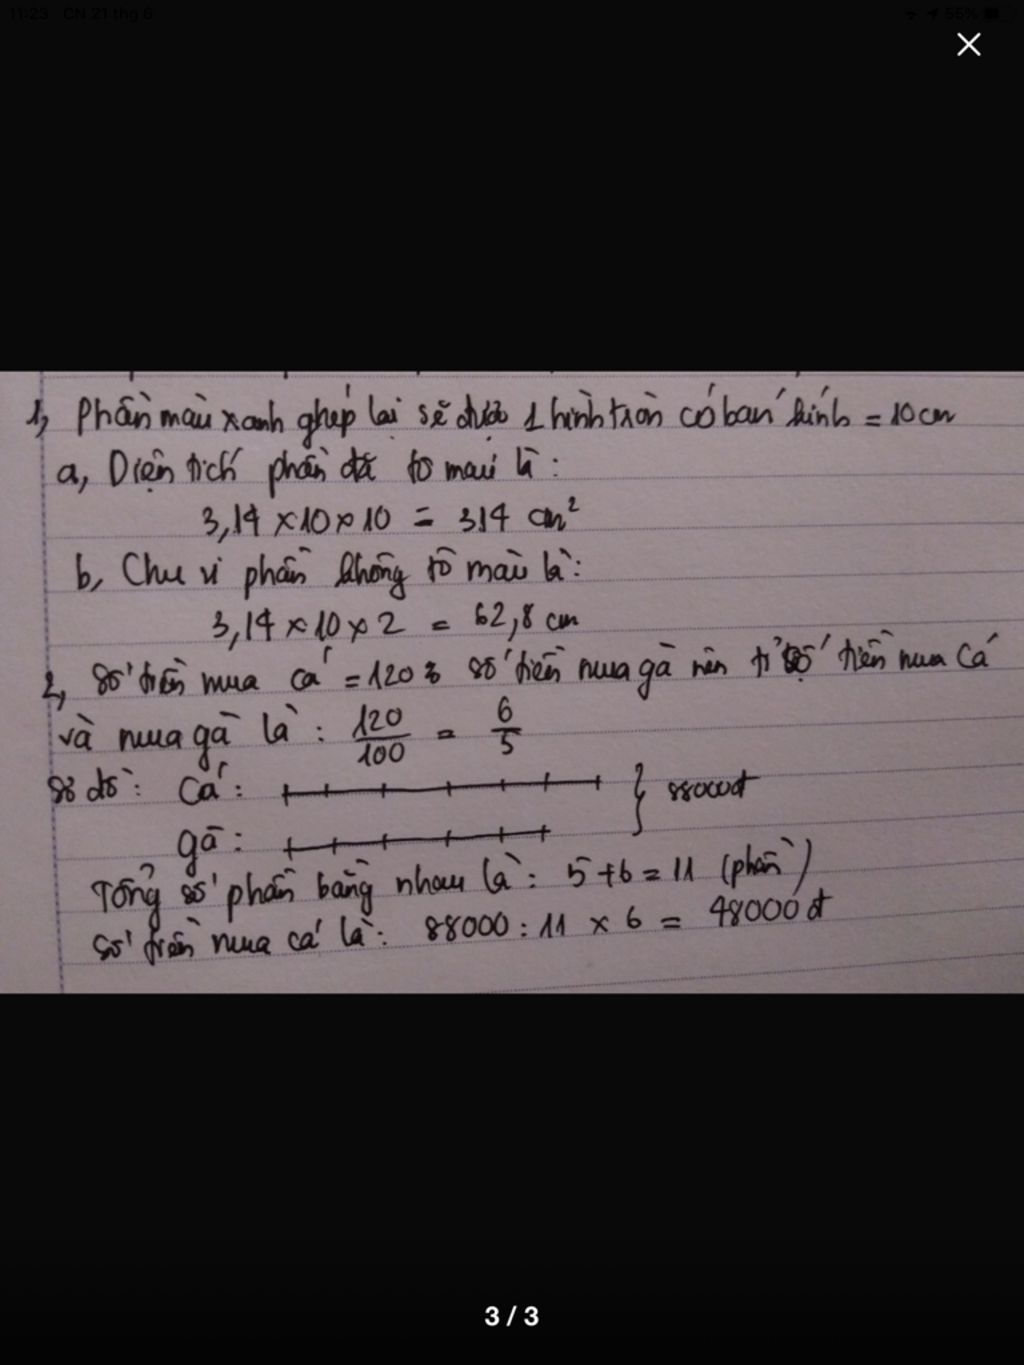 11:23 CN 21 thg 6
55%
1, Phần màu xanh ghép lại sẽ được 1 hình tròn có bán kính = 10 cm
a, Diện tích phần đã tô màu là :
3,14 × 10 × 10 = 314 cm²
b, Chu vi phần không tô màu là :
3,14 × 10 × 2 = 62,8 cm
2, Số tiền mua cá = 120% số tiền mua gà nên tỉ số tiền mua cá
và mua gà là : 120/100 = 6/5
Sơ đồ : Cá :
88000đ
gà :
Tổng số phần bằng nhau là : 5 + 6 = 11 (phần)
Số tiền mua cá là : 88000 : 11 × 6 = 48000đ
3 / 3